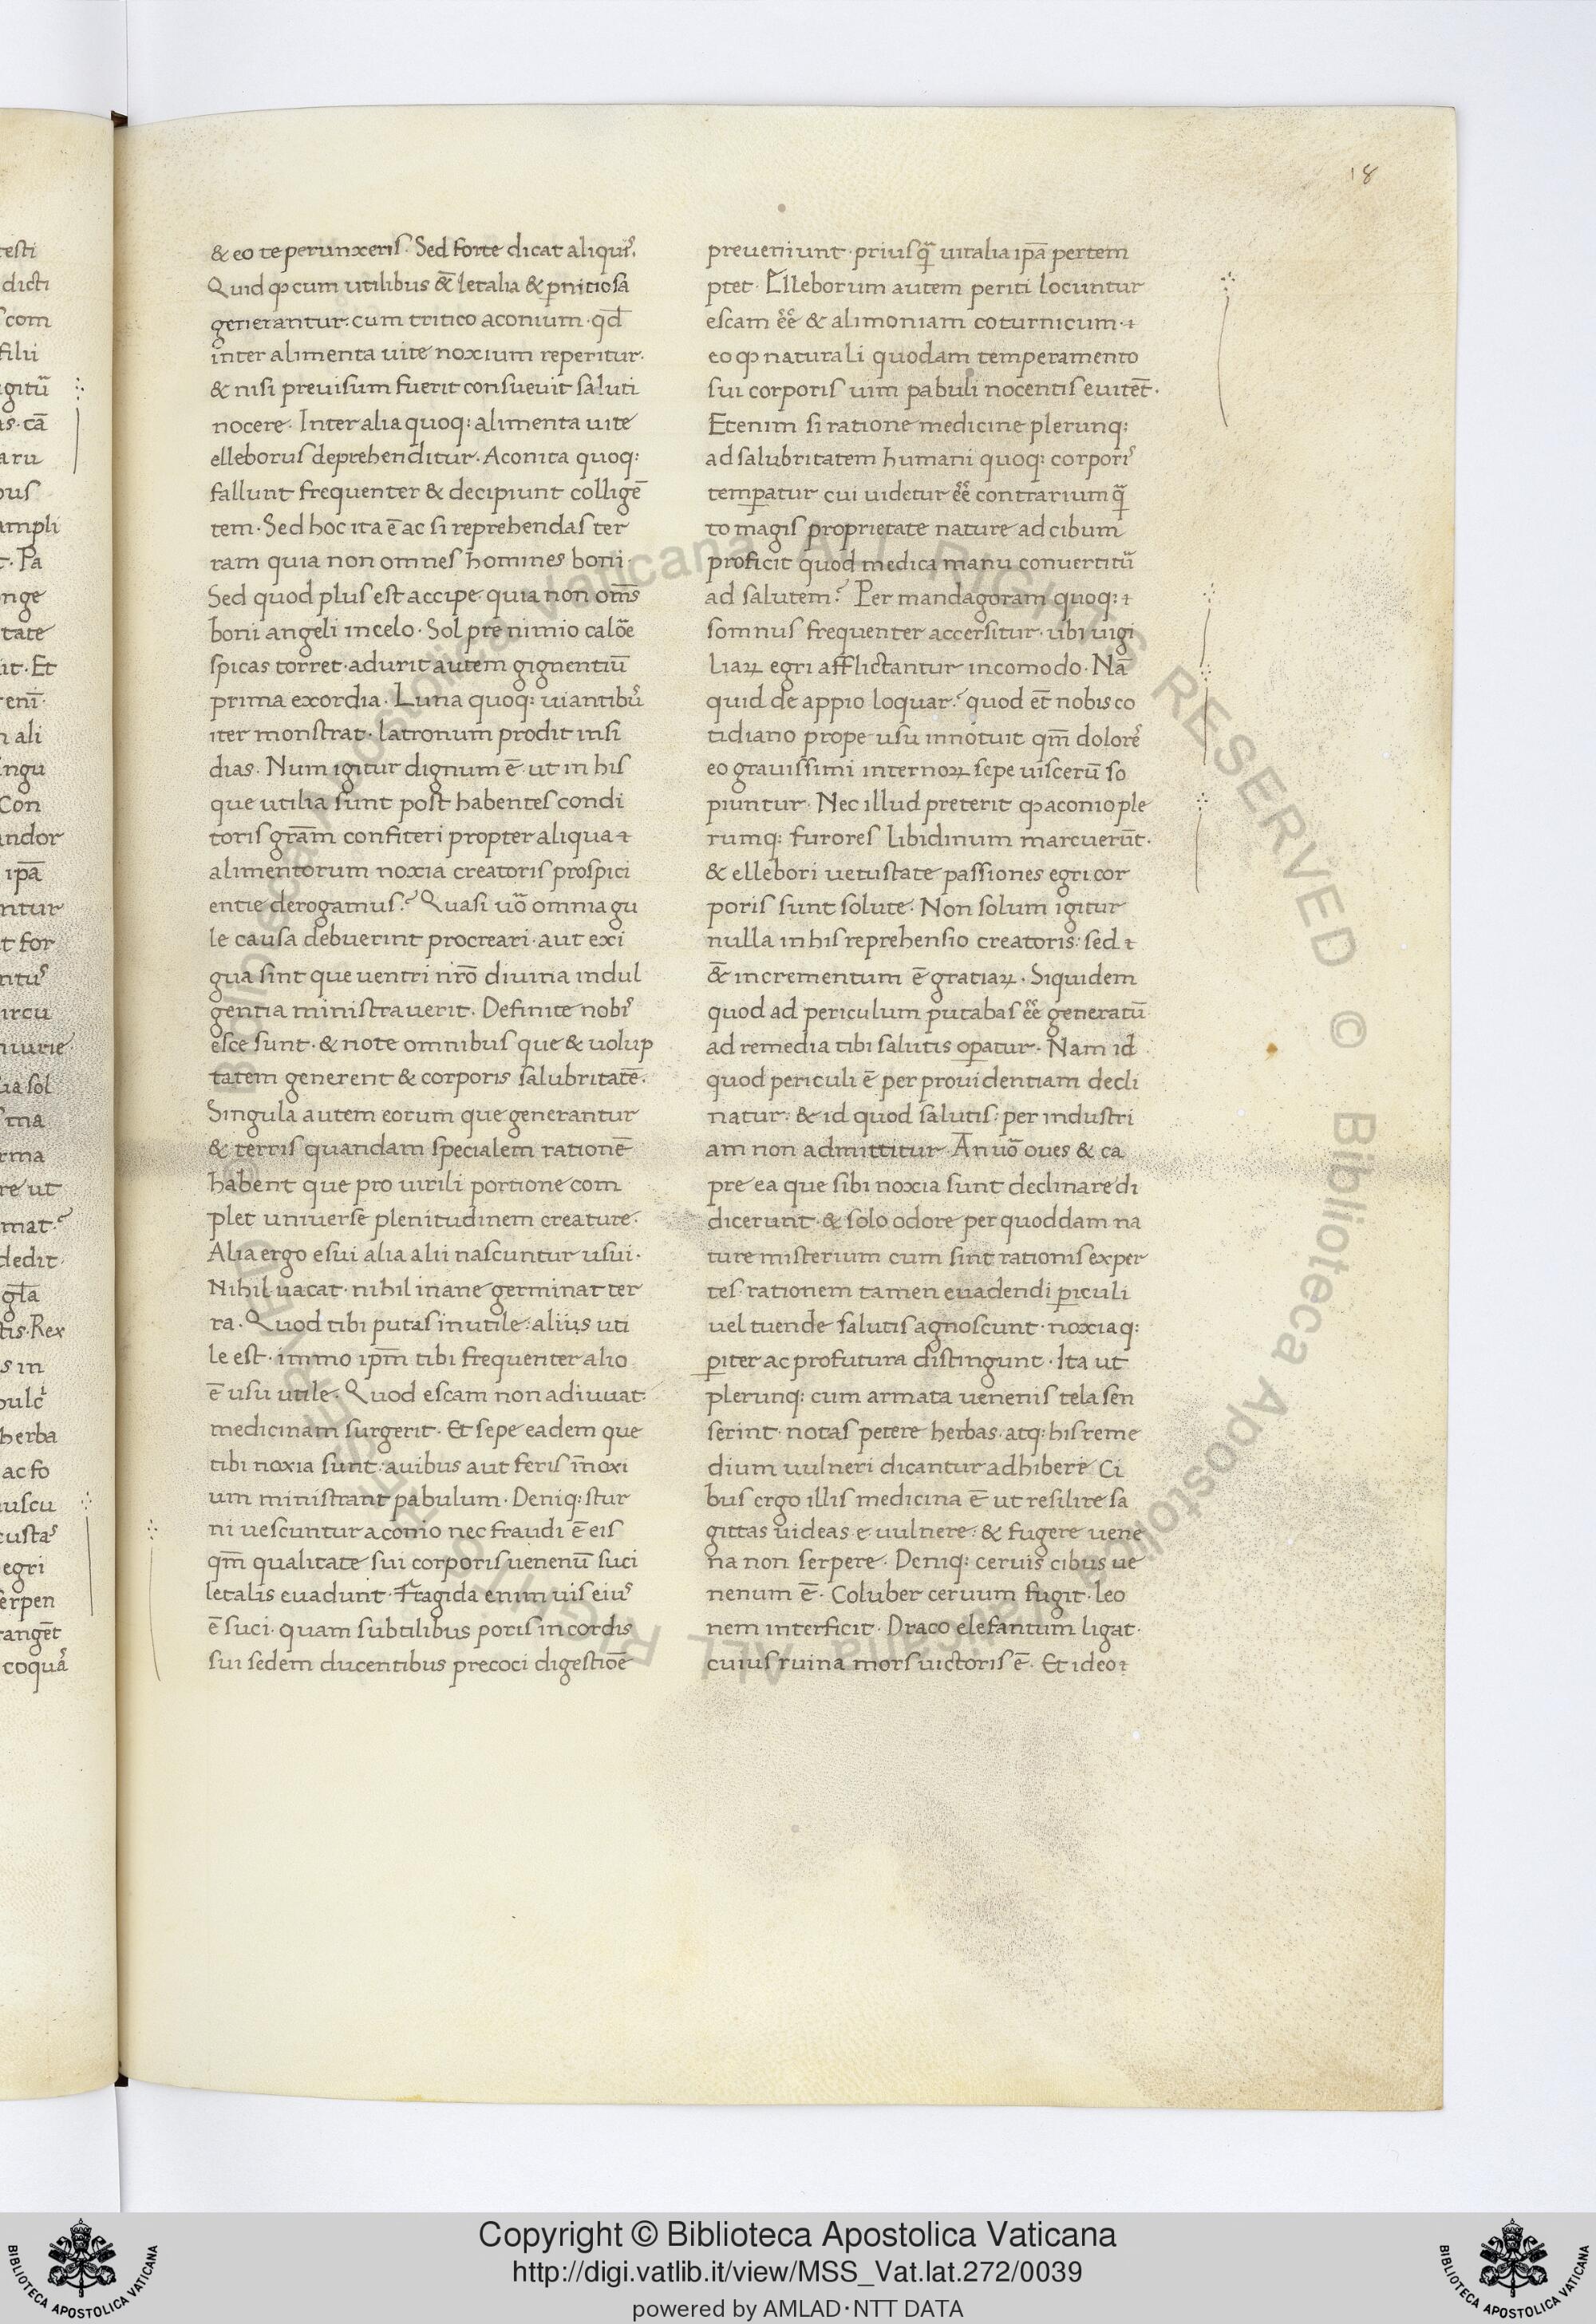 18
& eo te perunxeris. Sed forte dicat aliquis.
Quid ꝙ cum utilibus & letalia & ꝑnitiosa
generantur: cum tritico aconium. qđ
inter alimenta uite noxium reperitur.
& nisi previsum fuerit consuevit saluti
nocere. Inter alia quoq: alimenta uite
elleborus deprehenditur. Aconita quoq:
fallunt frequenter & decipiunt colligē
tem. Sed hoc ita ē ac si reprehendas ter
ram quia non omnes homines boni
Sed quod plus est accipe quia non om̄s
boni angeli in celo. Sol pre nimio calōe
spicas torret. adurit autem gignentiū
prima exordia. Luna quoq: uiantibus
iter monstrat. latronum prodit insi
dias. Num igitur dignum ē ut in his
que utilia sunt post habentes condi
toris grām confiteri propter aliqua ⁊
alimentorum noxia creatoris prospici
entie derogamus? Quasi uo͂ omnia gu
le causa debuerint procreari. aut exi
gua sint que ventri nr̄o divina indul
gentia ministraverit. Definite nobis
esce sunt. & note omnibus que & volup
tatem generent & corporis salubritatē.
Singula autem eorum que generantur
& terris quandam specialem rationē
habent que pro virili portione com
plet universe plenitudinem creature.
Alia ergo esui alia alii nascuntur usui.
Nihil vacat. nihil inane germinat ter
ra. Quod tibi putas inutile: aliis uti
le est. immo ip̄m tibi frequenter alio
ē usu utile. Quod escam non adiuvat:
medicinam surgerit. Et sepe eadem que
tibi noxia sunt: avibus aut feris īnoxi
um ministrant pabulum. Deniq: stur
ni vescuntur aconio nec fraudi ē eis
qm̄ qualitate sui corporis venenū suci
letalis evadunt. Fragida enim vis eius
ē suci. quam subtilibus poris in cordis
sui sedem ducentibus precoci digestiōe
preveniunt. priusq̃ vitalia ip̄a pertem
ptet. Elleborum autem periti locuntur
escam eē & alimoniam coturnicum. ⁊
eo ꝙ naturali quodam temperamento
sui corporis vim pabuli nocentis evitet̄.
Etenim si ratione medicine plerunq:
ad salubritatem humani quoq: corporis
temꝑatur cui videtur eē contrarium q̃
to magis proprietate nature ad cibum
proficit quod medica manu convertitur
ad salutem? Per mandagoram quoq: ⁊
somnus frequenter accersitur. ubi uigi
liaꝝ egri afflictantur incomodo. Nā
quid de appio loquar? quod et̄ nobis co
tidiano prope usu innotuit qm̄ dolores
eo gravissimi internoꝝ sepe viscerū so
piuntur. Nec illud preterit ꝙ aconio ple
rumq: furores libidinum marcuerūt.
& ellebori vetustate passiones egri cor
poris sunt solute. Non solum igitur
nulla in his reprehensio creatoris: sed ⁊
&̄ incrementum ē gratiaꝝ. Siquidem
quod ad periculum putabas eē generatū
ad remedia tibi salutis oꝑatur. Nam id
quod periculi ē per providentiam decli
natur: & id quod salutis: per industri
am non admittitur. An uō oves & ca
pre ea que sibi noxia sunt declinare di
dicerunt. & solo odore per quoddam na
ture misterium cum sint rationis exper
tes. rationem tamen evadendi ꝑiculi
vel tuende salutis agnoscunt. noxiaq:
ꝑiter ac profutura distingunt. Ita ut
plerunq: cum armata venenis tela sen
serint. notas petere herbas. atq: his reme
dium vulneri dicantur adhibere. Ci
bus ergo illis medicina ē ut resilire sa
gittas videas e vulnere: & fugere vene
na non serpere. Deniq: cervis cibus ve
nenum ē. Coluber cervum fugit. leo
nem interficit. Draco elefantum ligat.
cuius ruina mors victoris ē. Et ideo ⁊
Copyright © Biblioteca Apostolica Vaticana
http://digi.vatlib.it/view/MSS_Vat.lat.272/0039
powered by AMLAD·NTT DATA
BIBLIOTECA APOSTOLICA VATICANA
BIBLIOTECA APOSTOLICA VATICANA